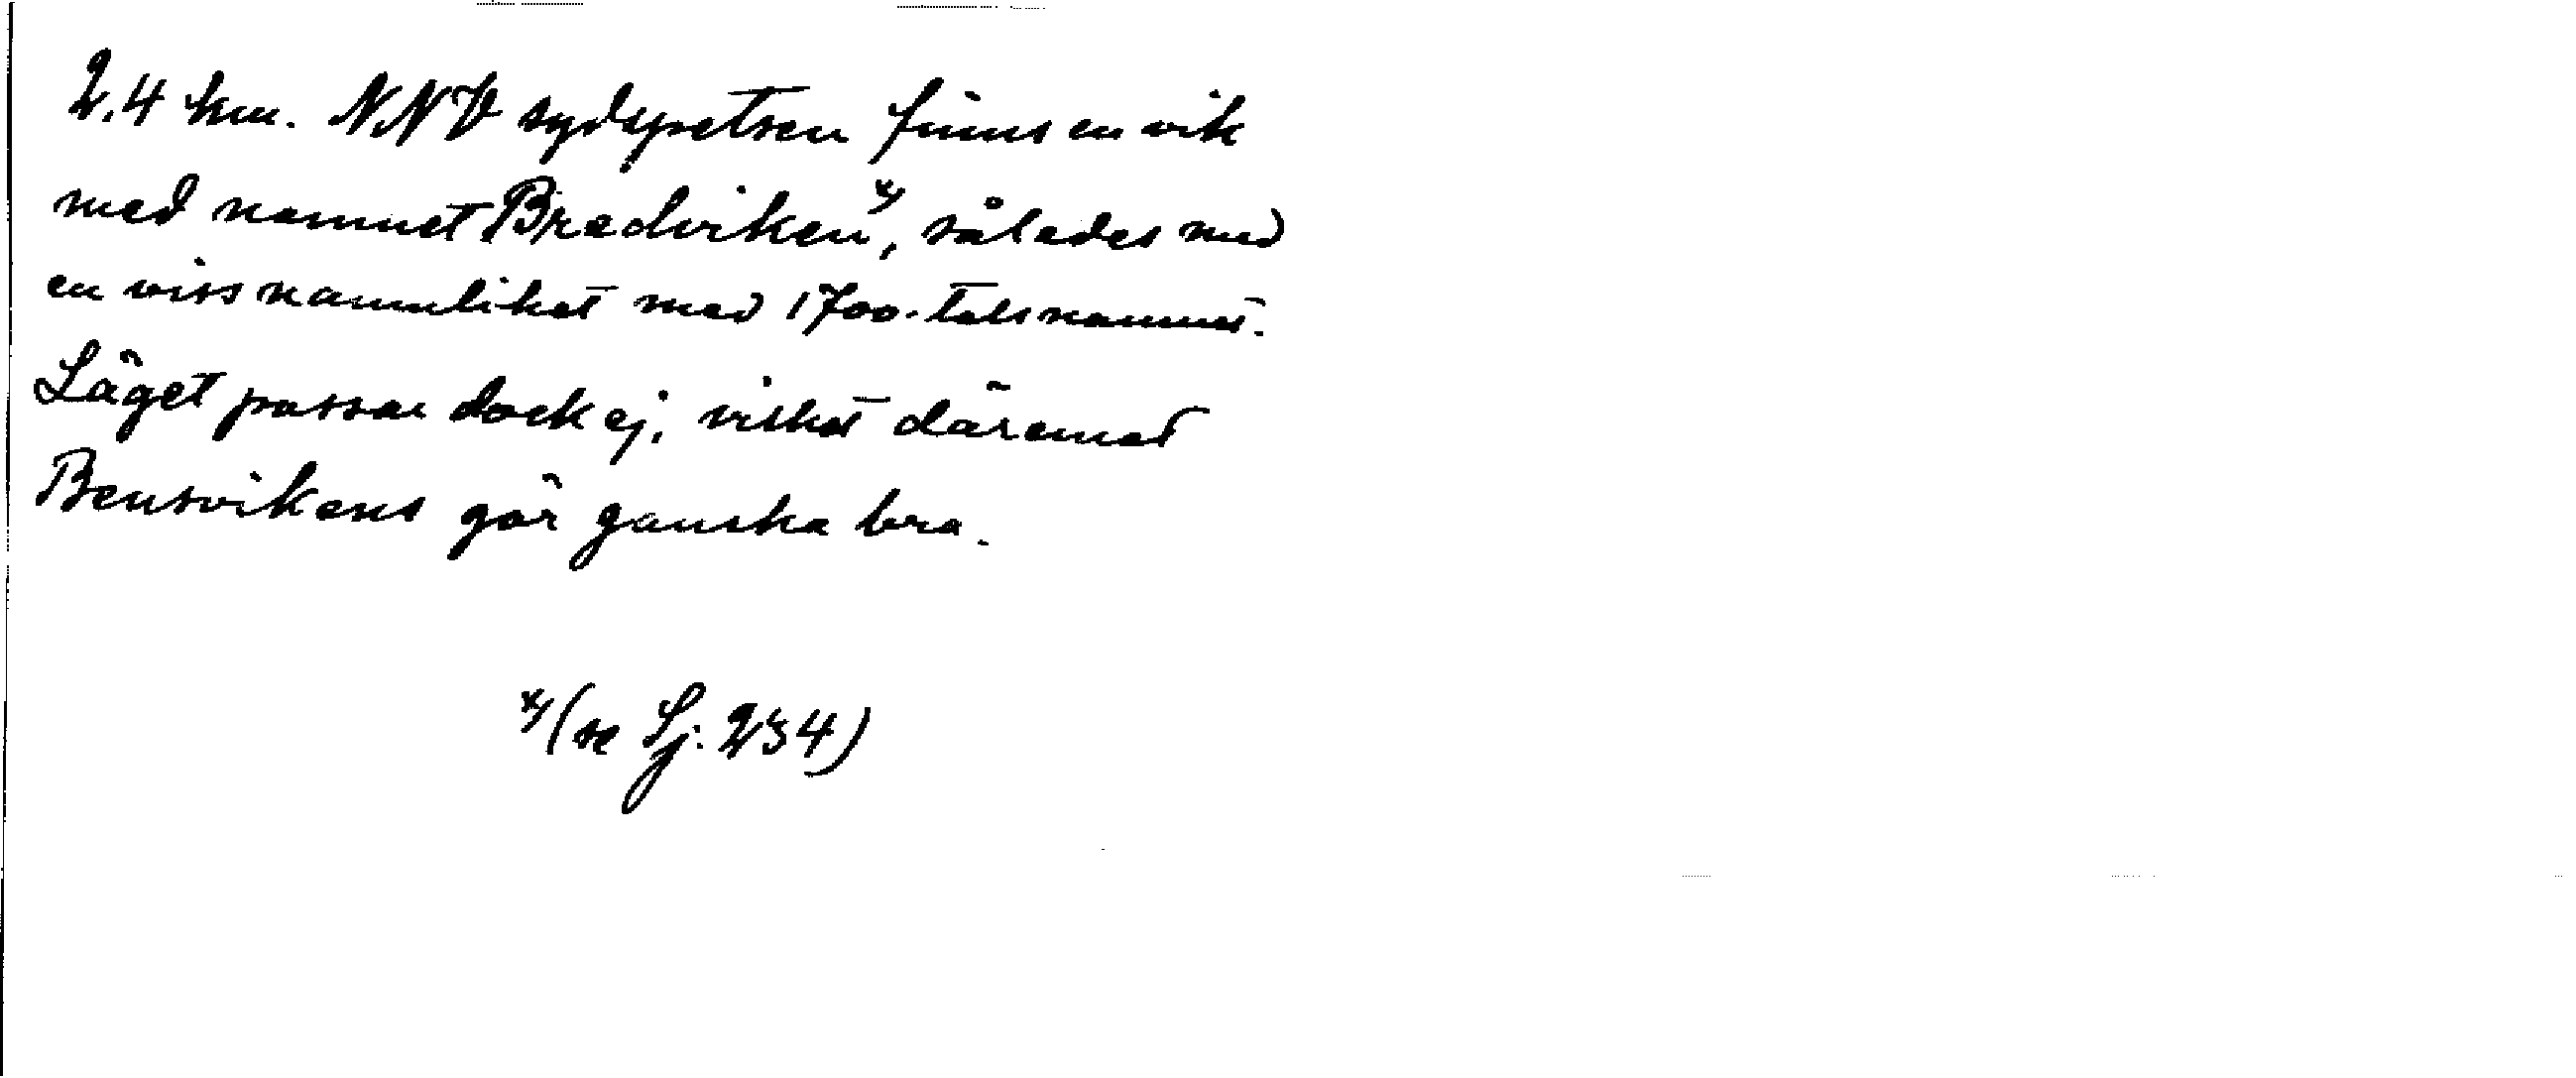 2.4 km. NNV sydspetsen finns en vik
med namnet Bredviken x), således med
en viss namnlikhet med 1700-talsnamnet.
Läget passar dock ej, vilket däremot
Bensvikens gör ganska bra.
x) (se Sj. 234)